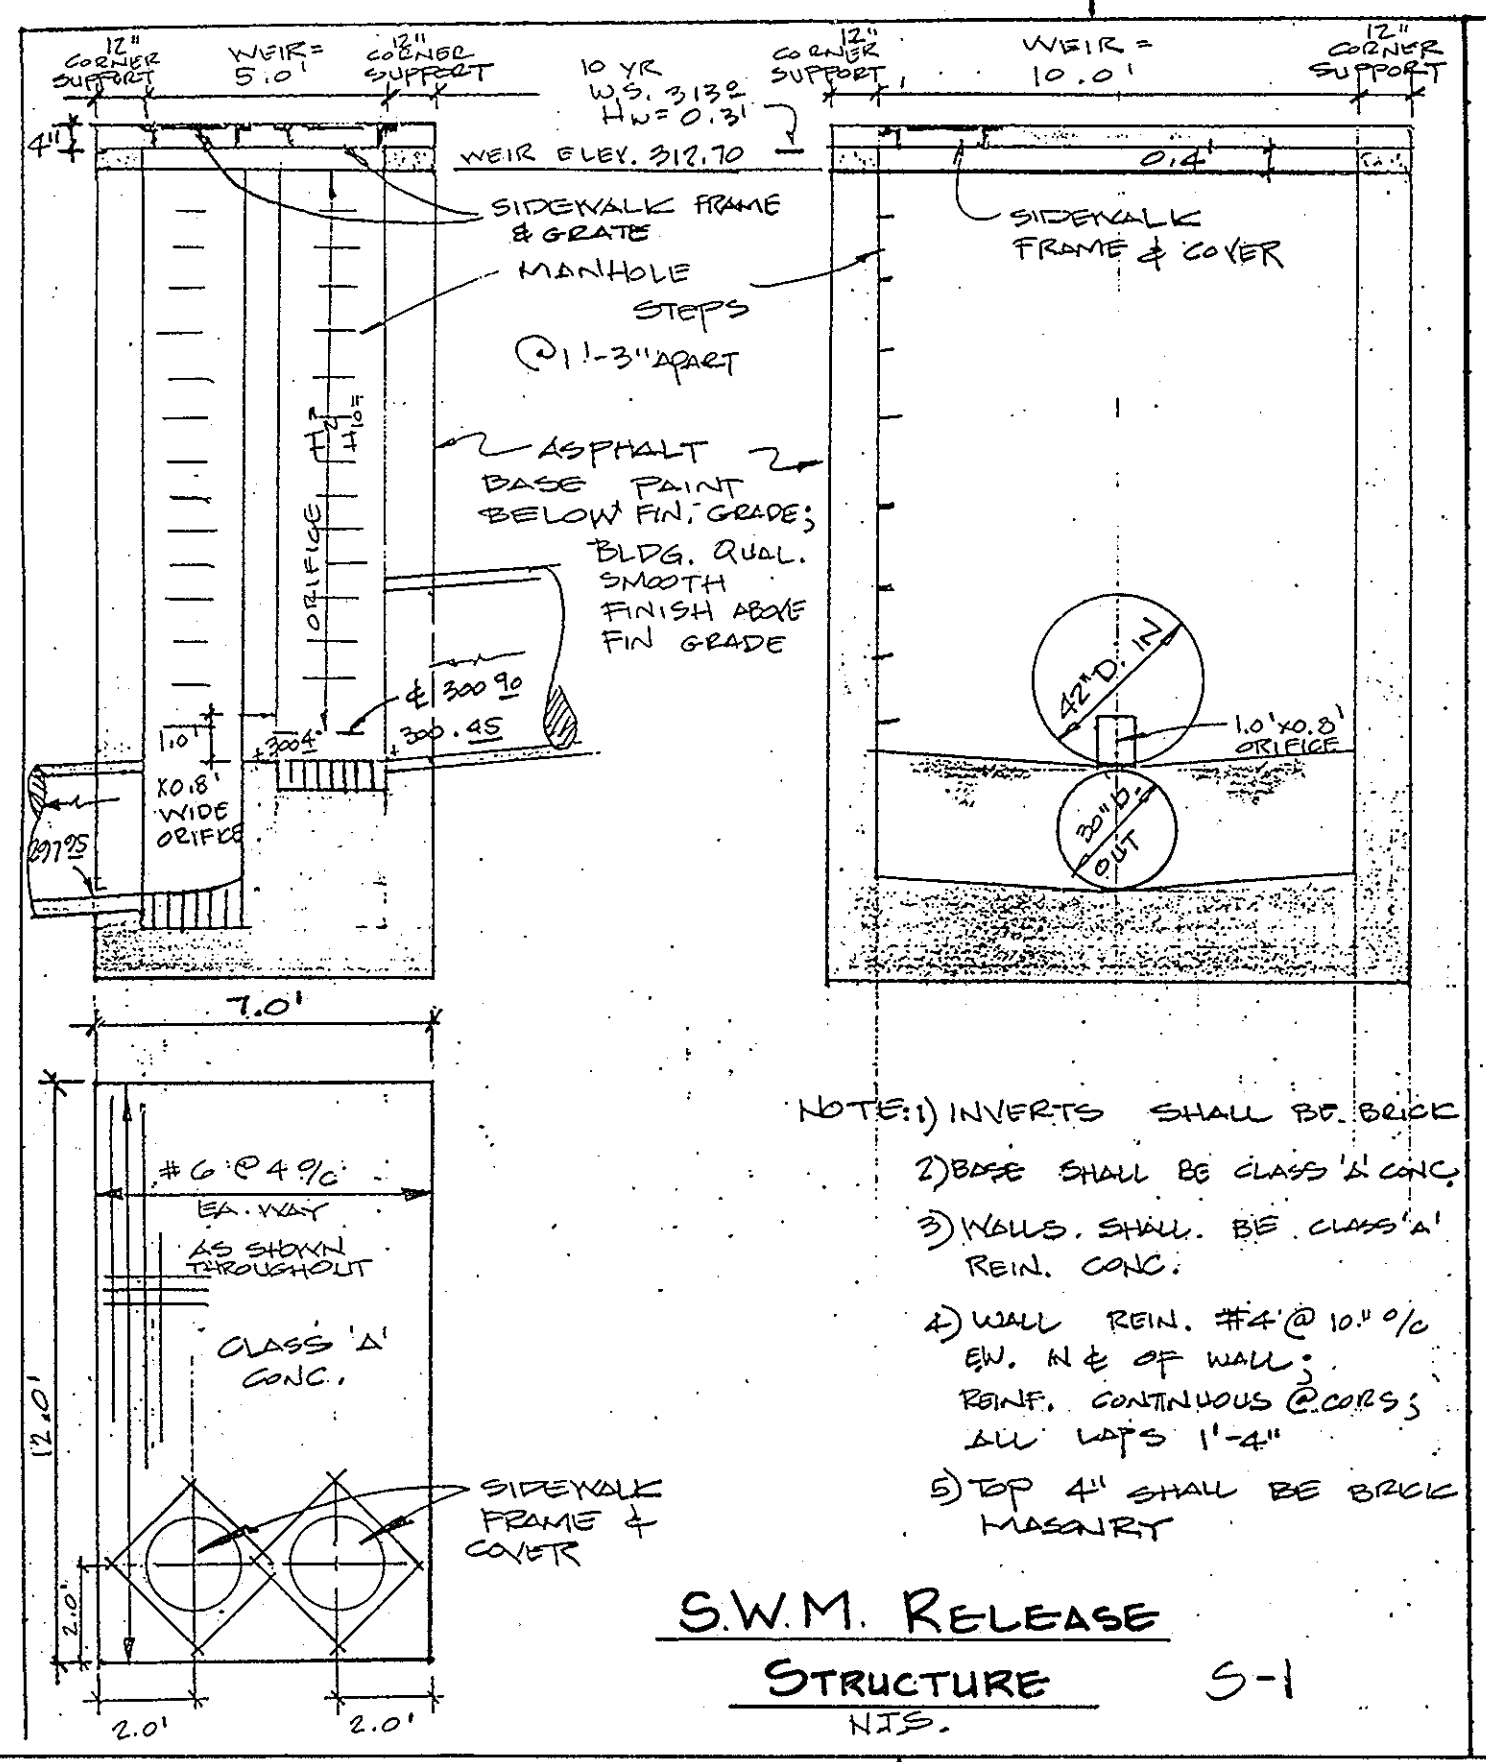 12"
CORNER
SUPPORT
WEIR =
5.0'
12"
CORNER
SUPPORT
10 YR
W.S. 313.0
HW = 0.3'
12"
CORNER
SUPPORT
WEIR =
10.0'
12"
CORNER
SUPPORT
4"
WEIR ELEV. 312.70
0.4'
SIDEWALK FRAME
& GRATE
SIDEWALK
FRAME & COVER
MANHOLE
STEPS
@ 1'-3" APART
ORIFICE
H10=
ASPHALT
BASE PAINT
BELOW FIN. GRADE;
BLDG. QUAL.
SMOOTH
FINISH ABOVE
FIN GRADE
℄ 300.90
300.45
3004
1.0'
X0.8'
WIDE
ORIFICE
297.95
42" D. IN
1.0'X0.8'
ORIFICE
30" D.
OUT
7.0'
#6 @ 4 O/C
EA. WAY
AS SHOWN
THROUGHOUT
CLASS 'A'
CONC.
12.0'
2.0'
SIDEWALK
FRAME &
COVER
2.0'
2.0'
NOTE: 1) INVERTS SHALL BE BRICK
2) BASE SHALL BE CLASS 'A' CONC.
3) WALLS SHALL BE CLASS 'A'
REIN. CONC.
4) WALL REIN. #4 @ 10" O/C
EW. IN ℄ OF WALL;
REINF. CONTINUOUS @ CORS;
ALL LAPS 1'-4"
5) TOP 4" SHALL BE BRICK
MASONRY
S.W.M. RELEASE
STRUCTURE
S-1
N.T.S.